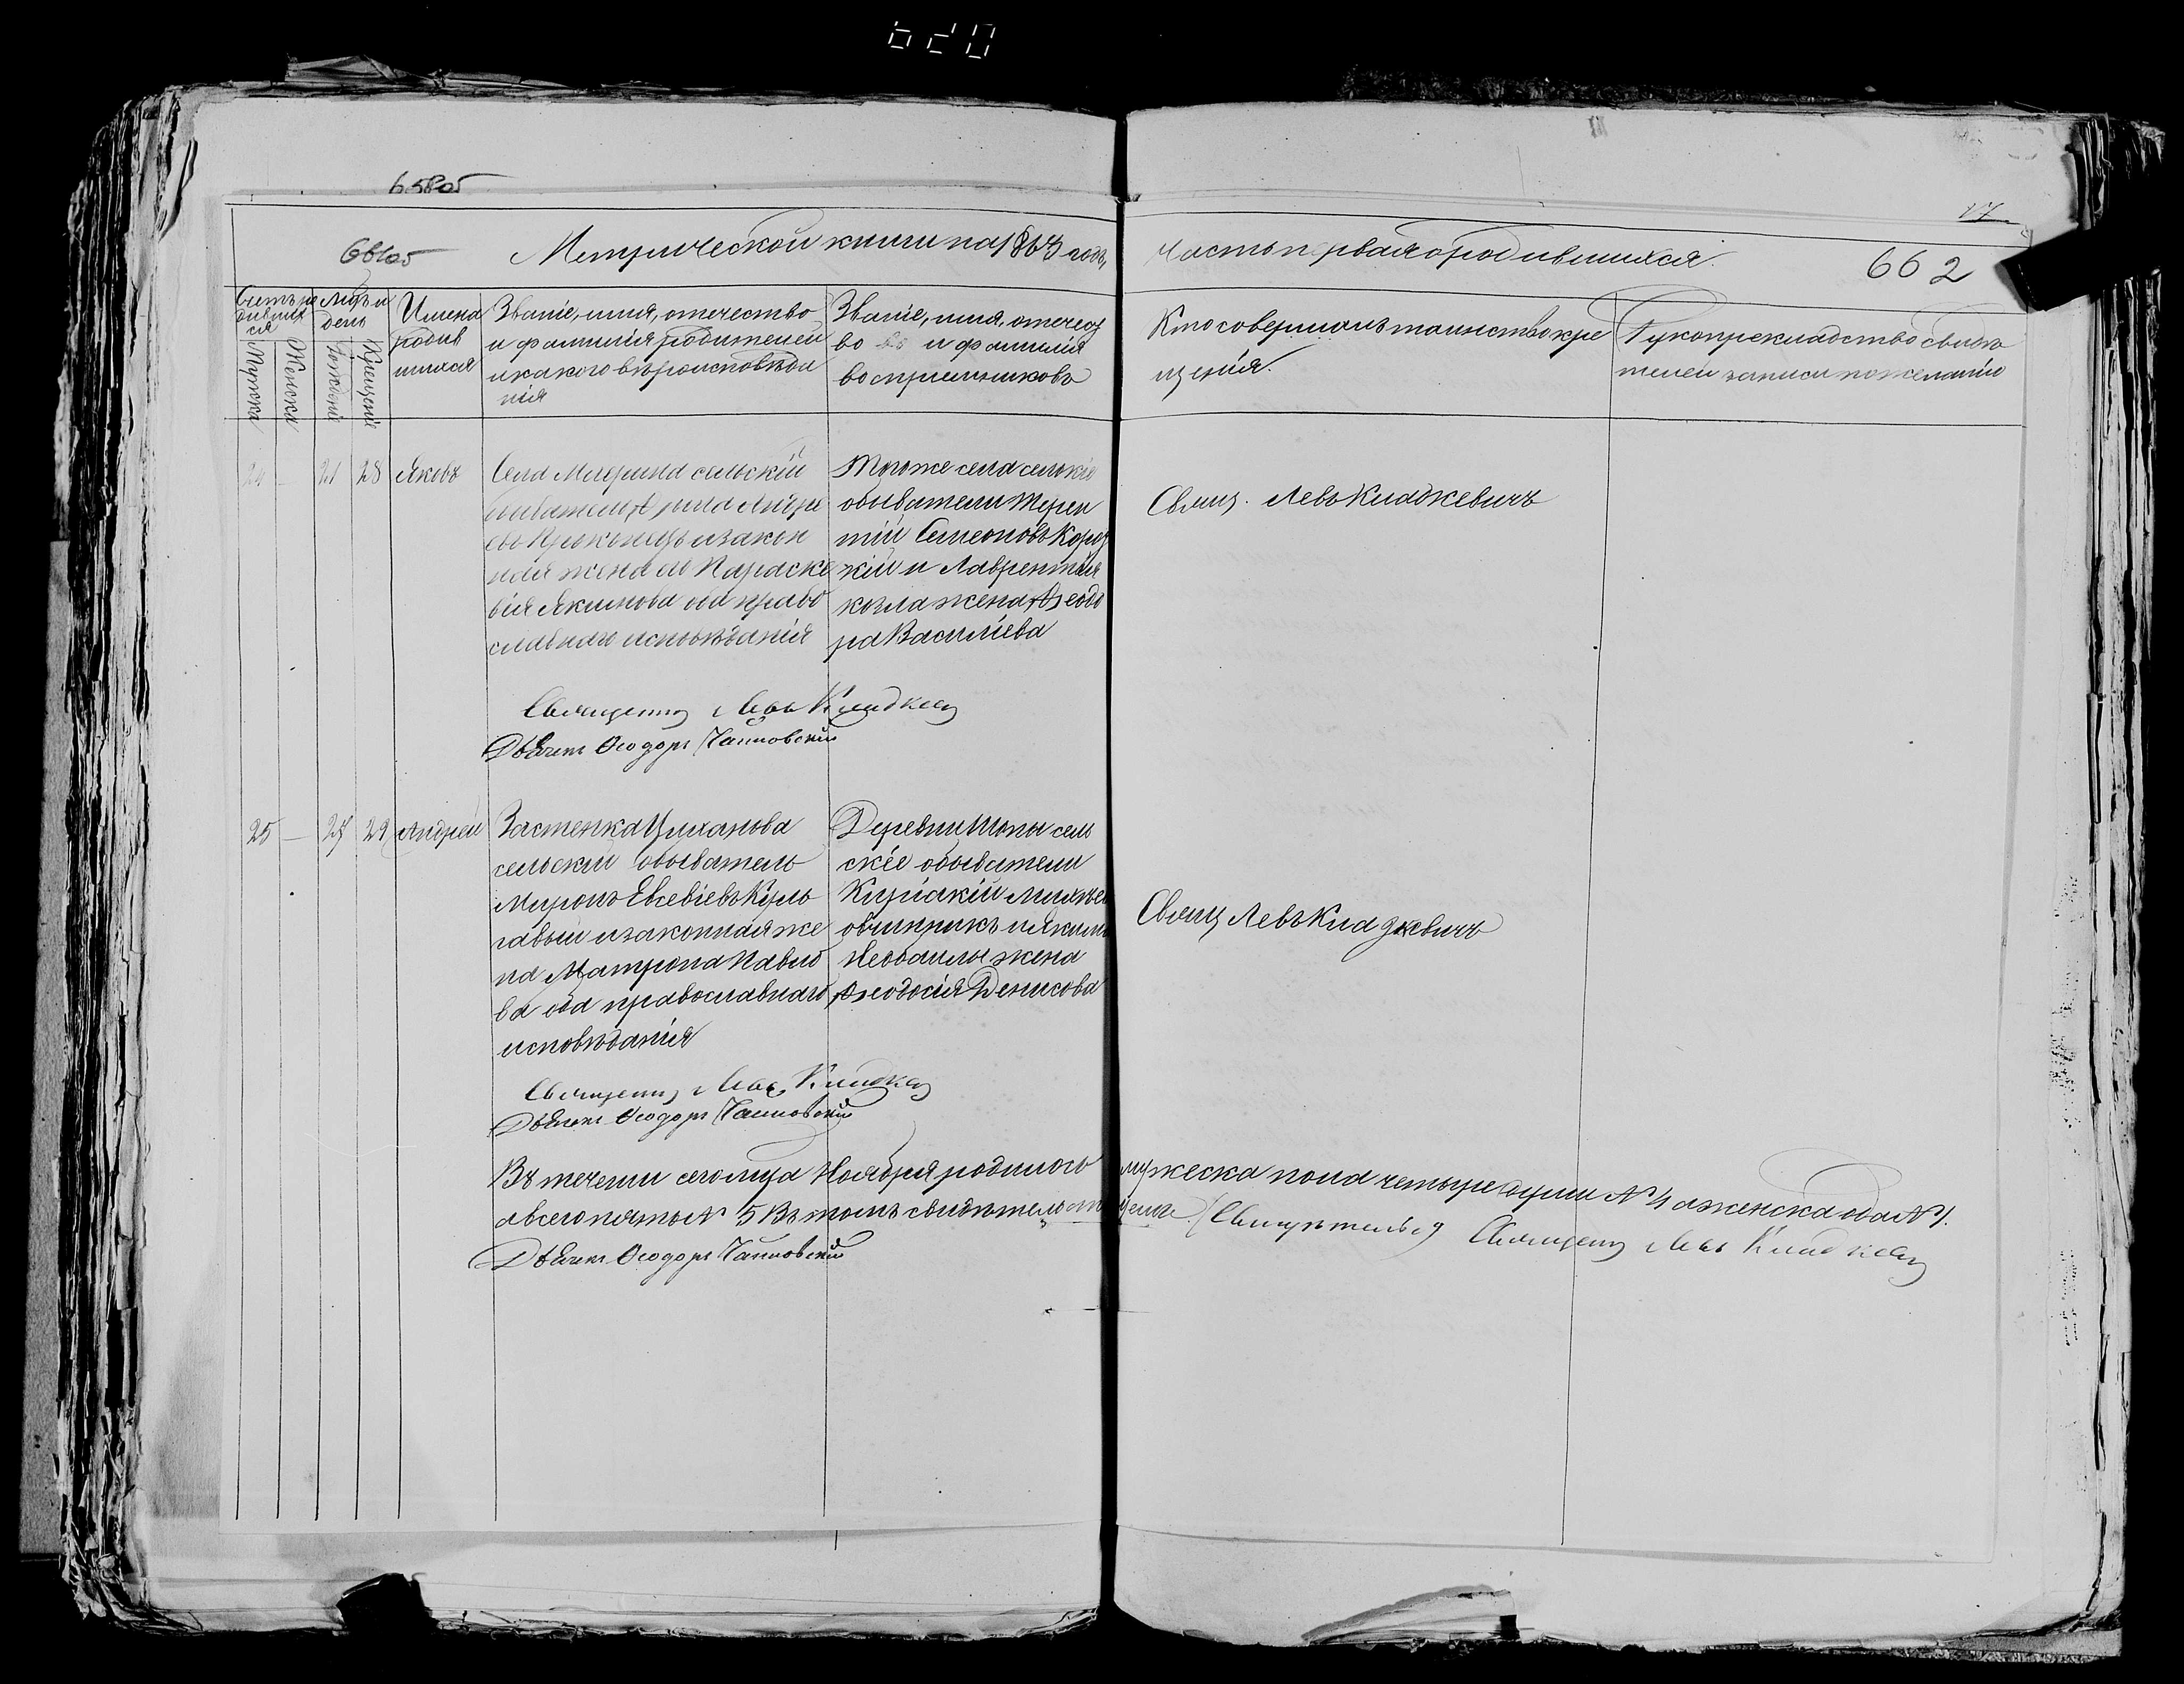 658об
17
661об
Метрической книги на 1863 годъ,
Часть первая о родившихся.
662
Счетъ ро
дивших
ся
Мужска
Женска
Мѣцъ и
день
Рожденiя
Крещенiя
Имена
родив
шихся
Званіе, имя, отчество
и фамилія родителей
и какого вѣроисповѣда
нія
Званіе, имя, отчест
во и фамилія
воспріемниковъ
Кто совершалъ таинство кре
щенія.
Рукоприкладство свидѣ
телей записи по желанію
24 - 21 28 Яковъ
Села сельскій
и закон
ная жена его Параске
вія Якимова оба право
славнаго исповѣданія
Того же села сельскіе
обыватели Терен
тій Семеоновъ
и Лаврентія
козла жена Ѳеодо
ра Василіева
Свящ. Левъ Кладкевичъ
Священникъ Левъ Кладкев
Дьячекъ Ѳеодоръ Чайковскій
25 — 27 29 Андрей
Застенка Цуканова
сельскій обыватель
Миронъ Евсевіевъ
и законная же
на Матрона Павло
ва оба православнаго
исповѣданія
Деревни сель
скіе обыватели
Киріакій Михѣев
и Якима
жена
Ѳеодосія Денисова
Свящ Левъ Кладкевичъ
Священникъ Левъ Кладкев
Дьячекъ Ѳеодоръ Чайковскій
Въ теченіи сего мѣца Ноября родилось мужеска пола четыре души № 4 а женска одна № 1.
а всего пять № 5 Въ томъ свидѣтельствуемъ. Священ Левъ Кладкев
Дьячекъ Ѳеодоръ Чайковскій